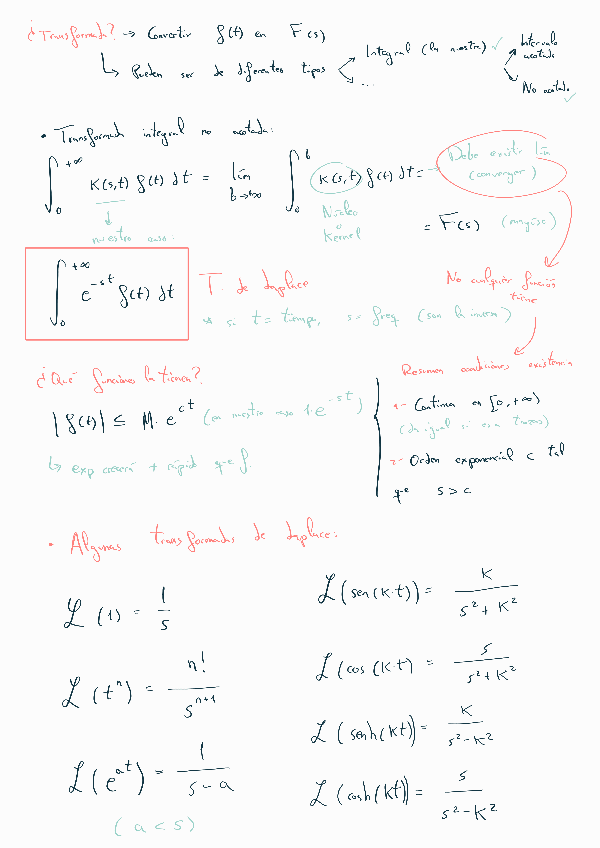 ¿Transformada? → Convertir f(t) en F(s)
↳ Pueden ser de diferentes tipos
Integral (la nuestra) ✓
...
Intervalo acotado
No acotado ✓
• Transformada integral no acotada:
∫₀^{+∞} K(s,t) f(t) dt = lim_{b→+∞} ∫₀^b K(s,t) f(t) dt =
→ Debe existir lim
(converger)
↓
nuestro caso:
Núcleo
o
Kernel
= F(s) (mayúsc)
∫₀^{+∞} e^{-st} f(t) dt
T. de Laplace
si t = tiempo, s = freq (son la inversa)
No cualquier función
tiene
¿Qué funciones la tienen?
|f(t)| ≤ M· e^{ct} (en nuestro caso 1·e^{-st})
↳ exp crecerá + rápido que f.
Resumen condiciones existencia
1- Continua en [0,+∞)
(da igual si es a trozos)
2- Orden exponencial c tal
que s > c
• Algunas transformadas de Laplace:
ℒ (1) = 1/s
ℒ (tⁿ) = n!/s^{n+1}
ℒ (e^{at}) = 1/(s - a)
(a < s)
ℒ (sen(k·t)) = K/(s² + K²)
ℒ (cos (K·t) = s/(s² + K²)
ℒ (senh(kt)) = K/(s² - K²)
ℒ (cosh(kt)) = s/(s² - K²)